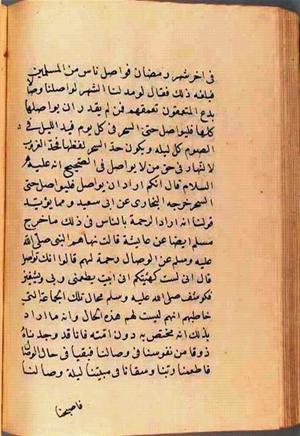 فى اخر شهر رمضان فواصل ناس من المسلمين
فبلغه ذلك فقال لو مد لنا الشهر لواصلنا وصالا
يدع المتعمقون تعمقهم فمن لم يقدر ان يواصلها
كلها فليواصل حتى السحر فى كل يوم فيد الليل فى
الصوم كل ليلة ويكون حد السحر لفطرها فحد الغروب
لانهار فى حق من لا يواصل فى الصحيح انه عليه
السلام قال ايكم اراد ان يواصل فليواصل حتى
السحر خرجه البخارى عن ابى سعيد ومما يؤيد
قولنا انه اراد الرحمة بالناس فى ذلك ما خرج
مسلم ايضا عن عايشة قالت نهاهم النبى صلى الله
عليه وسلم عن الوصال رحمة لهم قالوا انك تواصل
قال انى لست كهيئتكم انى ابيت يطعمنى ربى ويسقينى
فكوشف صلى الله عليه وسلم بحال تلك الجماعة التى
خاطبهم انهم ليست لهم هذه الحال وانه ما اراد
بذلك انه مختص به دون امته فانا قد وجدناه
ذوقا من نفوسنا فى وصالنا فبقينا فى حال الوصال
فاطعمنا ربنا وسقانا فى مبيتنا ليلة وصالنا
فاصبحنا